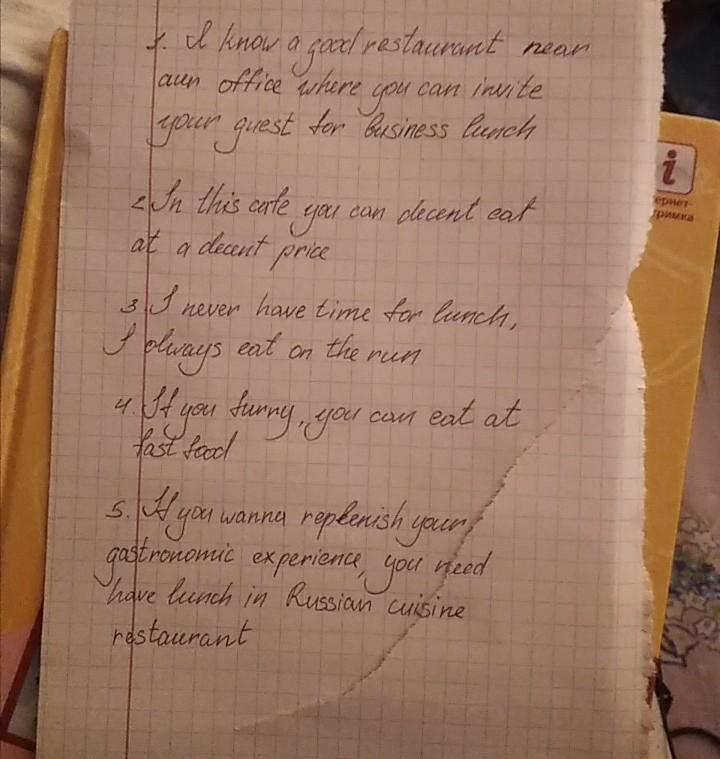 1. I know a good restaurant near
our office where you can invite
your guest for business lunch
2. In this cafe you can decent eat
at a decent price
3. I never have time for lunch,
I always eat on the run
4. If you furry, you can eat at
fast food
5. If you wanna replenish your
gastronomic experience, you need
have lunch in Russian cuisine
restaurant
i
ернет-
тримка